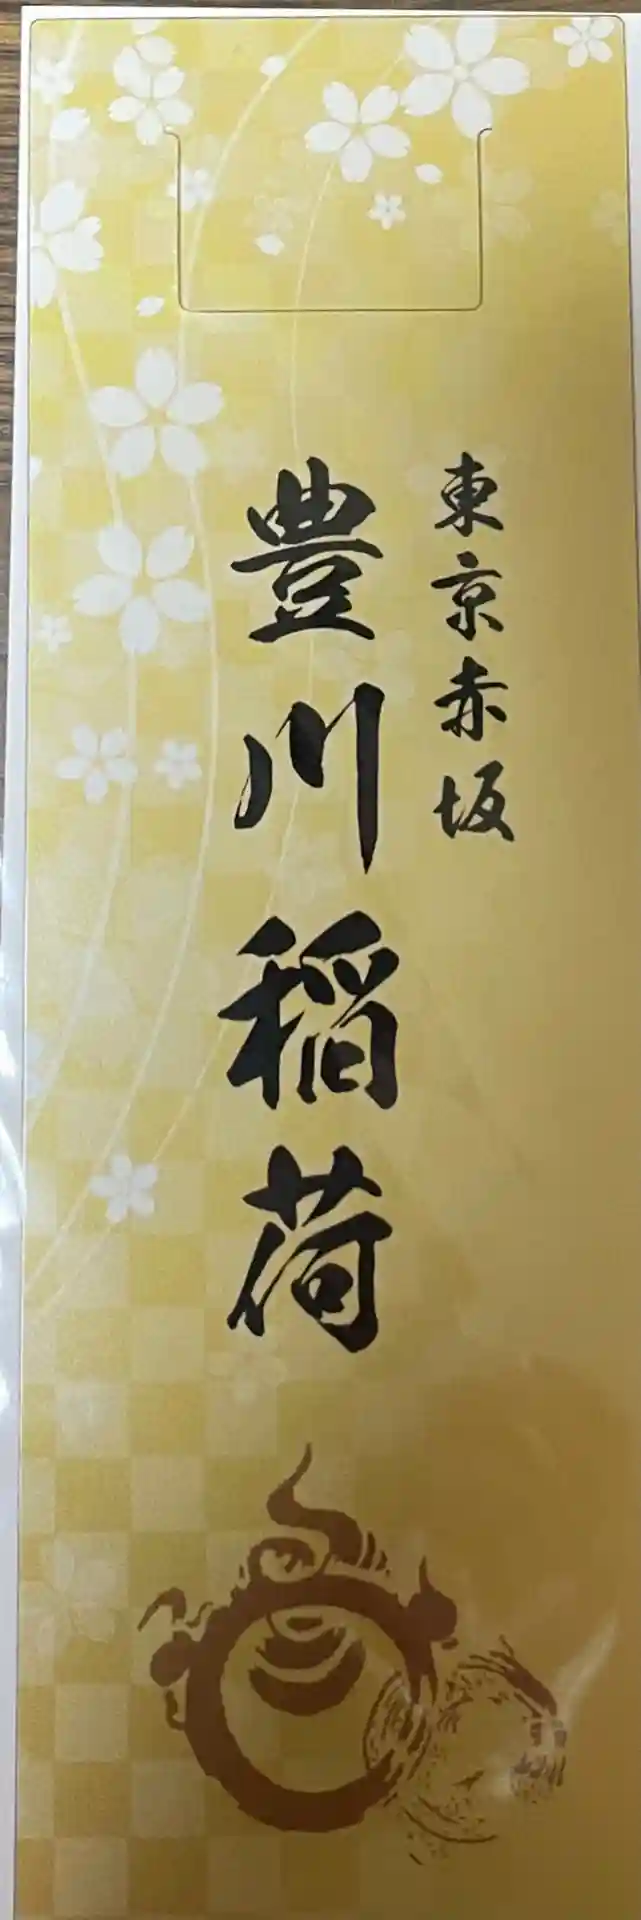 東京赤坂
豊川稲荷